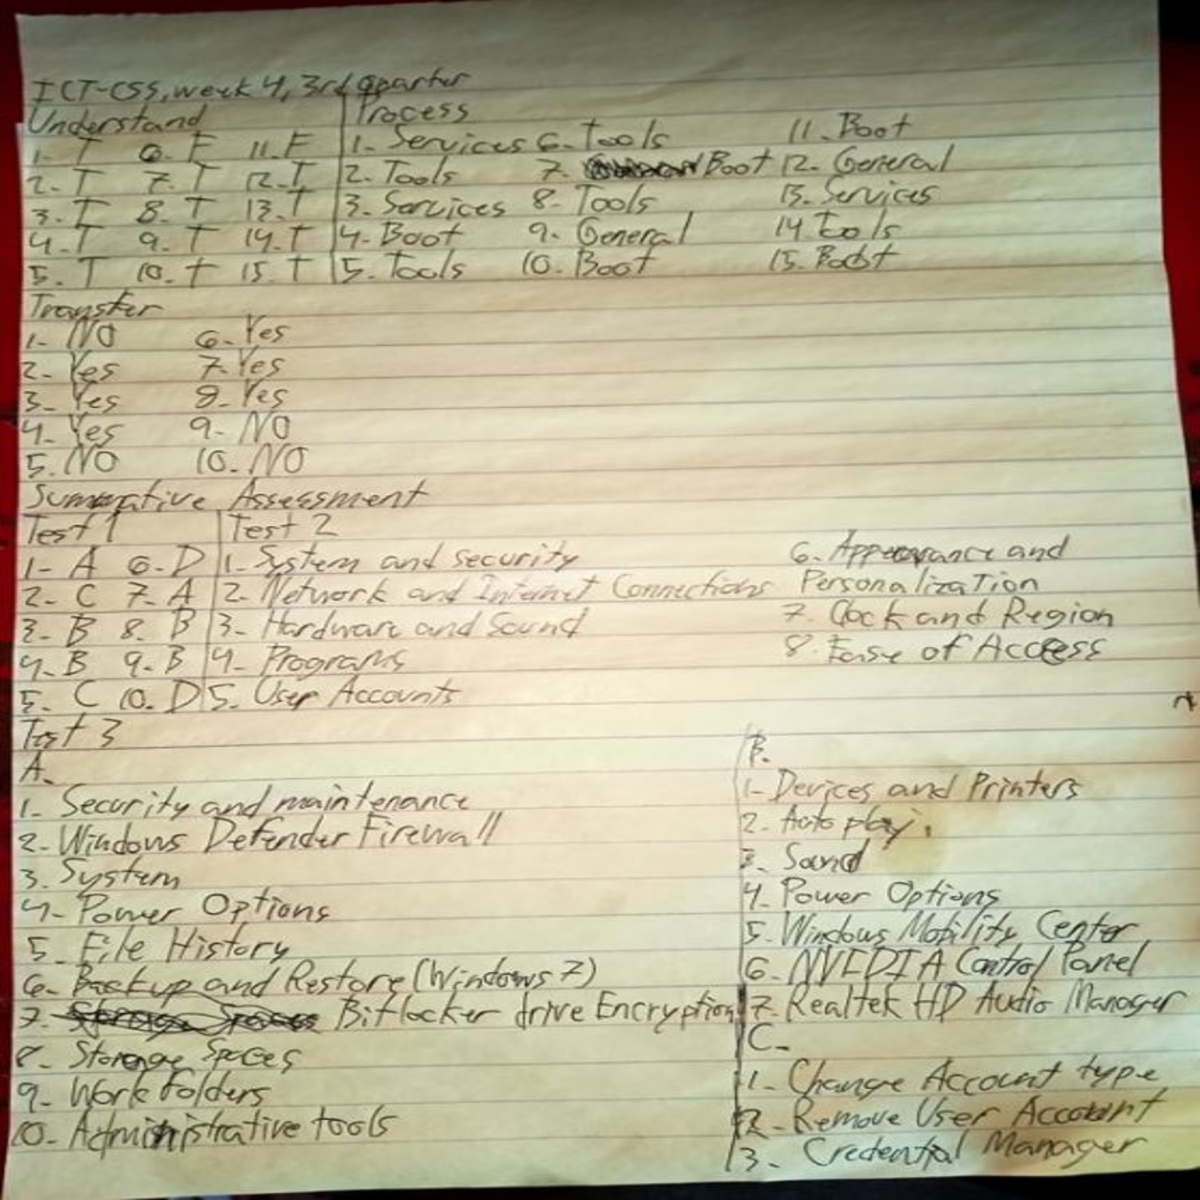 ICT-CSS, week 4, 3rd quarter
Understand
1. T 6. F 11. F
2. T 7. T 12. T
3. T 8. T 13. T
4. T 9. T 14. T
5. T 10. T 15. T
Process
1. Services 6. Tools 11. Boot
2. Tools 7. Boot 12. General
3. Services 8. Tools 13. Services
4. Boot 9. General 14 Tools
5. Tools 10. Boot 15. Boot
Transfer
1. NO 6. Yes
2. Yes 7. Yes
3. Yes 8. Yes
4. Yes 9. NO
5. NO 10. NO
Summative Assessment
Test 1
1. A 6. D
2. C 7. A
3. B 8. B
4. B 9. B
5. C 10. D
Test 2
1. System and security
2. Network and Internet Connections
3. Hardware and Sound
4. Programs
5. User Accounts
6. Appearance and
Personalization
7. Clock and Region
8. Ease of Access
Test 3
A.
1. Security and maintenance
2. Windows Defender Firewall
3. System
4. Power Options
5. File History
6. Backup and Restore (Windows 7)
7. Bitlocker drive Encryption
8. Storage Spaces
9. Work folders
10. Administrative tools
B.
1. Devices and Printers
2. Auto play.
3. Sound
4. Power Options
5. Windows Mobility Center
6. NVIDIA Control Panel
7. Realtek HD Audio Manager
C.
1. Change Account type
2. Remove User Account
3. Credential Manager